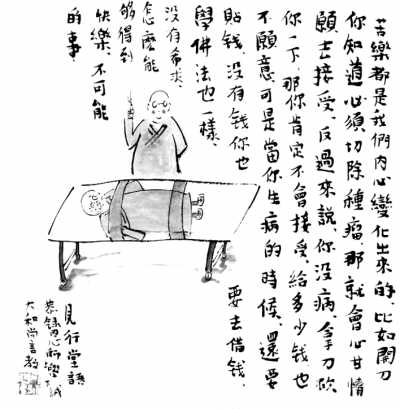 苦樂都是我們内心變化出來的,比如開刀
你知道必須切除種瘤,那就會心甘情
願去接受,反過來説,你没病,拿刀砍
你一下,那你肯定不會接受,給多少钱也
不願意可是當你生病的時候,還要
貼钱,没有钱你也要去借钱,
學佛法也一樣,
没有希求,
怎麽能
够得到
快樂,不可能
的事.
見行堂語
大和尚言教